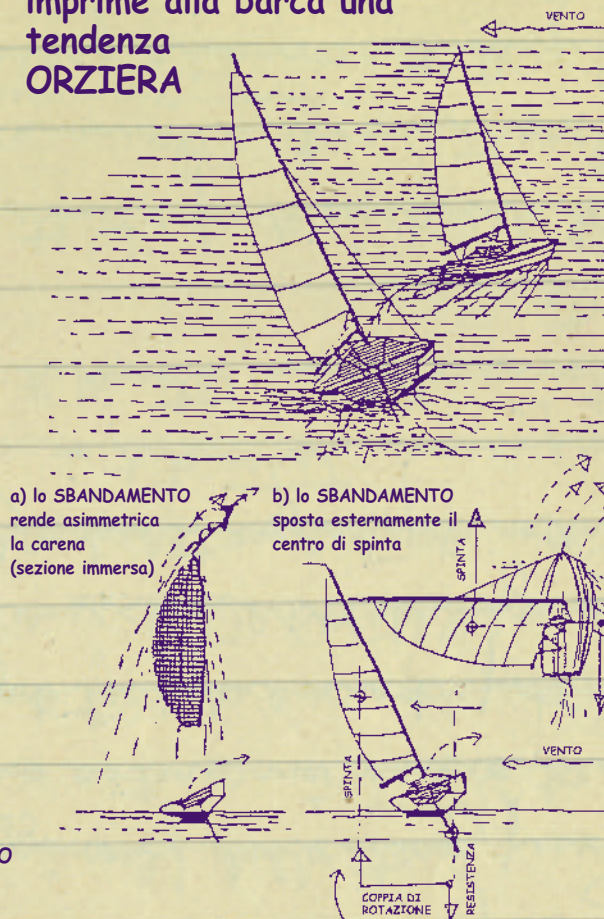 imprime alla barca una
tendenza
ORZIERA
VENTO
a) lo SBANDAMENTO
rende asimmetrica
la carena
(sezione immersa)
b) lo SBANDAMENTO
sposta esternamente il
centro di spinta
SPINTA
VENTO
SPINTA
RESISTENZA
COPPIA DI
ROTAZIONE
O